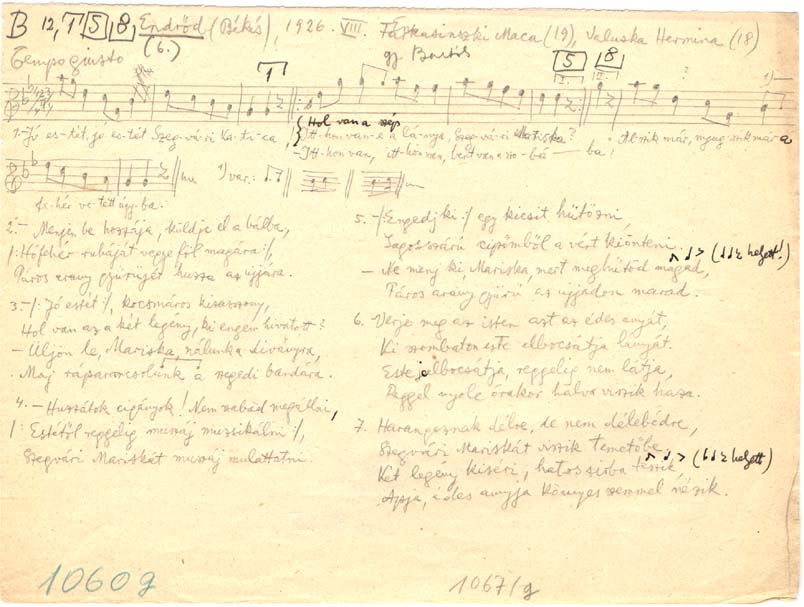 B 12, 7 5 8, Endrőd (Békés), 1926. VIII. Maca (19), Valuska Hermina (18)
(6.) gy Bartók
Tempo giusto
7 5 8
Hol van a szép
1. - Jó es-tét, jó es-tét Szeg-vá-ri Ka-ti-ca, Itt-hon van-e a lá-nya, Szeg-vá-ri Mariska? Al-szik már, nyug-szik már a
- Itt-hon van, itt-hon van, bent van a szo-bá-ba,
fe-hér ve-tett ágy-ba. 1) var.:
2. - Menjen be hozzája, küldje el a bálba,
/: Hófehér ruháját vegye föl magára :/,
Páros arany gyűrűjét huzza az ujjára.
3. - /: Jó estét :/, kocsmáros kisasszony,
Hol van az a két legény, ki engem hivatott?
- Üljön le, Mariska, nálunk a diványra,
Maj rápararcsolunk a szegedi bandára.
4. - Huzzátok cigányok! Nem szabad megállni,
/: Estétől reggelig muszáj muzsikálni :/,
Szegvári Mariskát muszáj mulattatni.
5. - /: Engedj ki :/ egy kicsit hűtőzni,
szárú cipőmből a vért kiönteni.
(helyett!)
- Ne menj ki Mariska, mert meghűtöd magad,
Páros arany gyűrű az ujjadon marad.
6. Verje meg az isten azt az édes anyát,
Ki szombaton este elbocsátja lányát.
Este elbocsátja, reggelig nem látja,
Reggel nyolc órakor halva viszik haza.
7. Harangoznak délre, de nem délebédre,
Szegvári Mariskát viszik temetőbe,
(helyett)
Két legény kiséri, hatos sirba teszik,
Apja, édes anyja könnyes szemmel nézik.
10609
1067/g